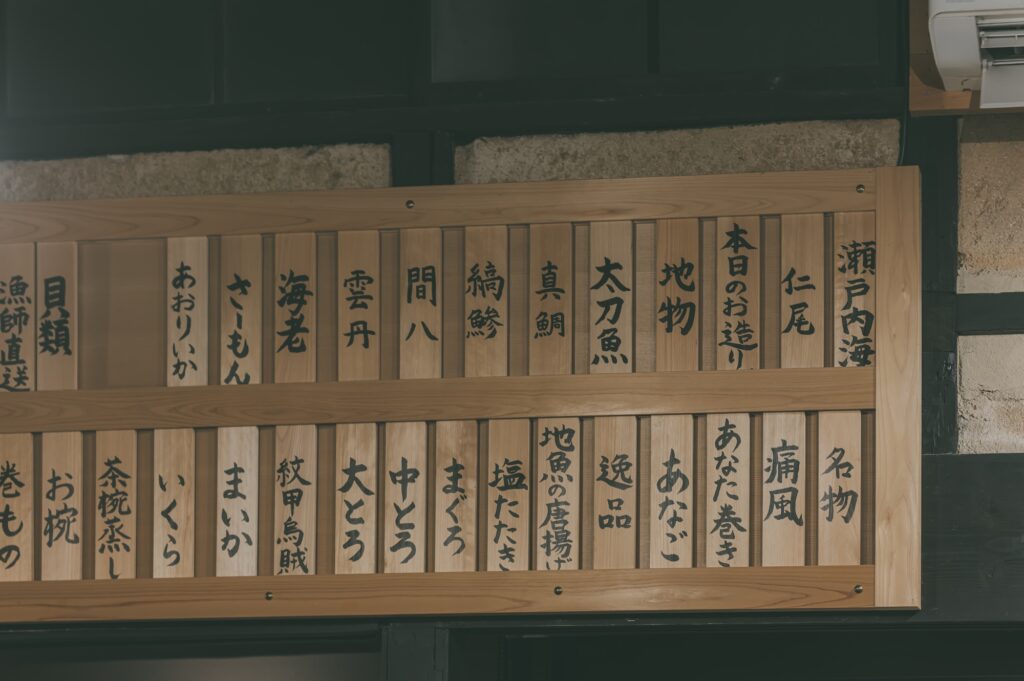 瀬戸内海
仁尾
本日のお造り
地物
太刀魚
真鯛
縞鯵
間八
雲丹
海老
さーもん
あおりいか
貝類
漁師直送
名物
痛風
あなた巻き
あなご
逸品
地魚の唐揚げ
塩たたき
まぐろ
中とろ
大とろ
紋甲烏賊
まいか
いくら
茶椀蒸し
お椀
巻もの